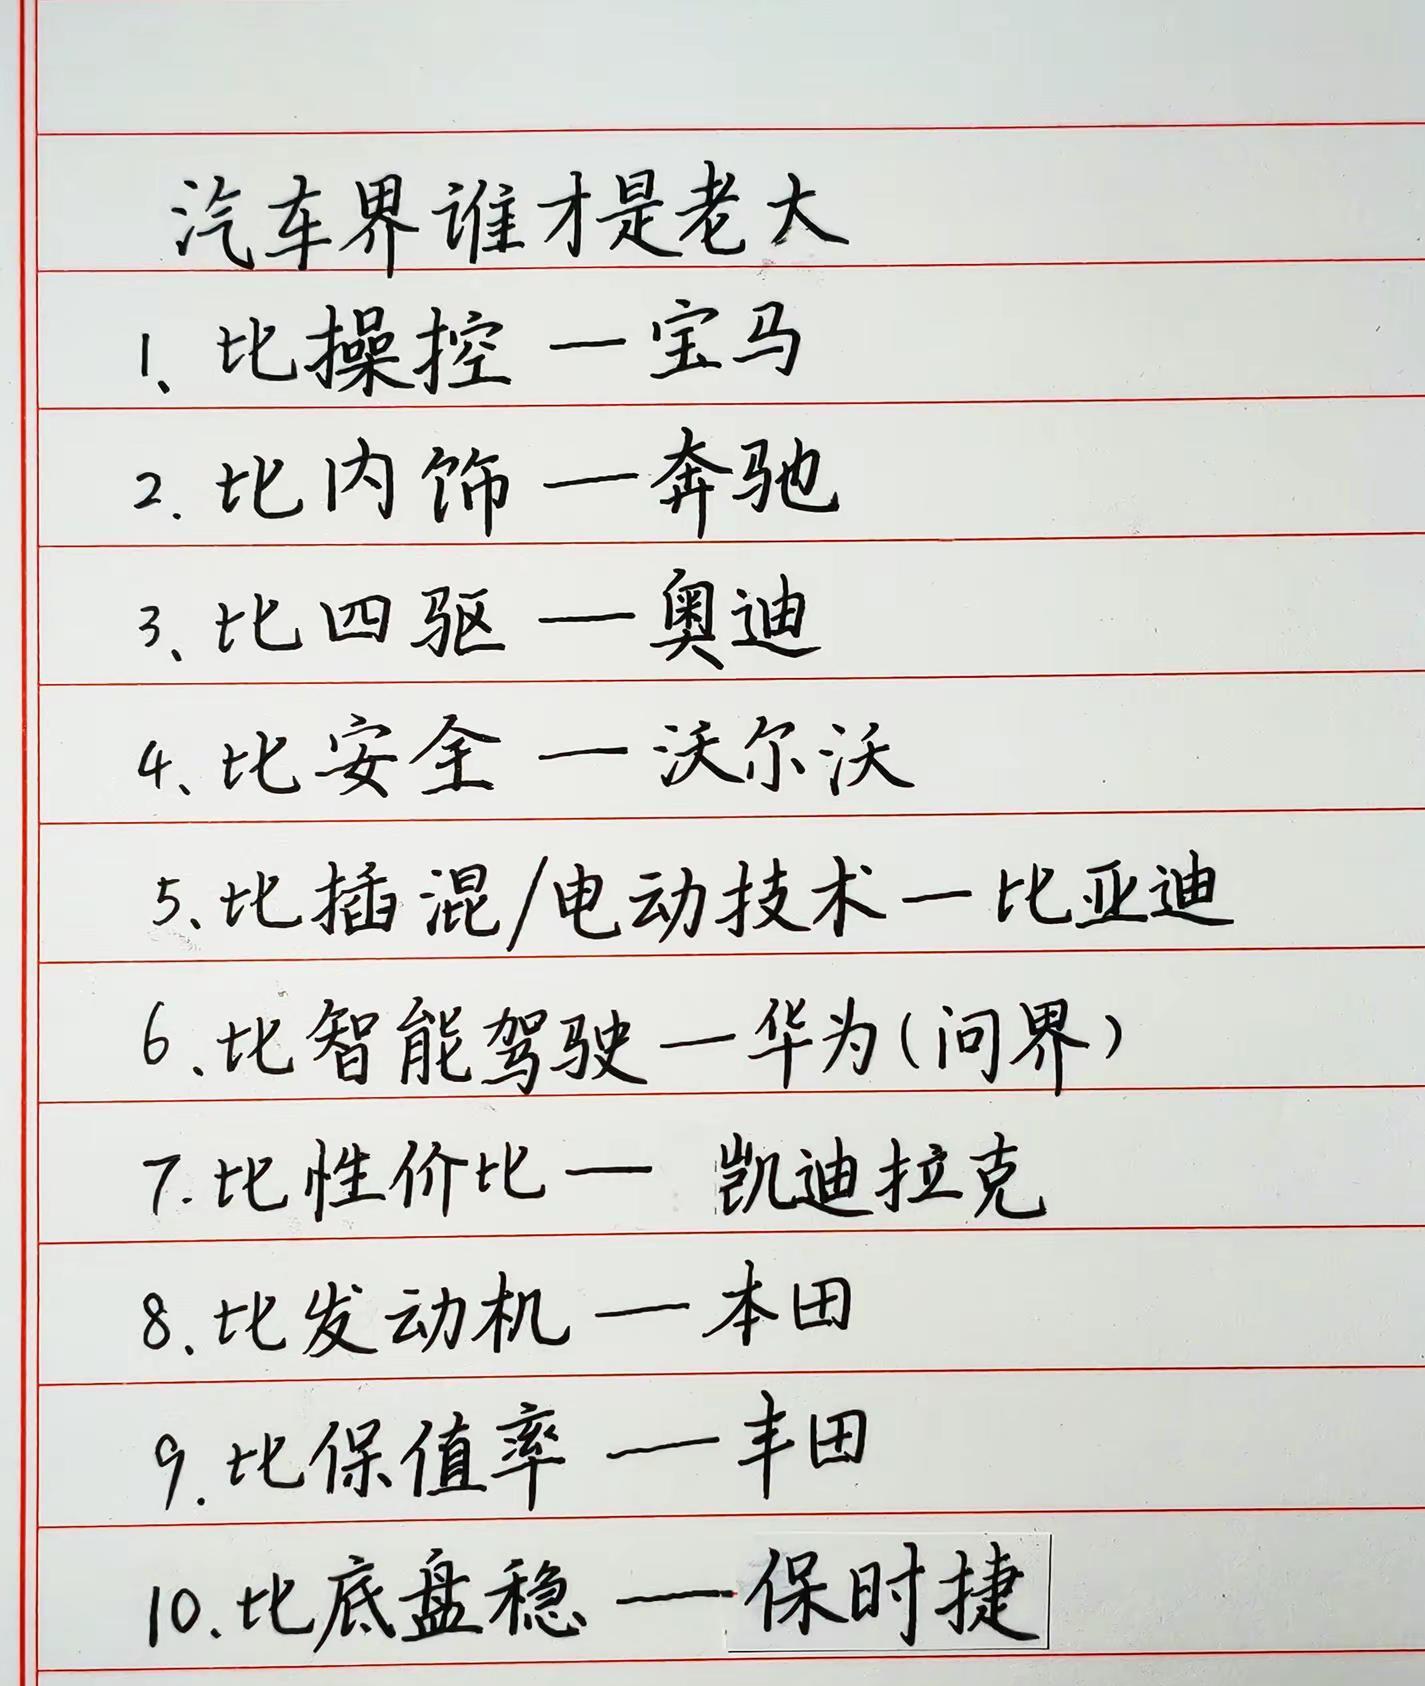 汽车界谁才是老大
1、比操控一宝马
2.比内饰一奔驰
3、比四驱一奥迪
4、比安全一沃尔沃
5、比插混/电动技术一比亚迪
6、比智能驾驶一华为(问界)
7.比性价比一凯迪拉克
8、比发动机一本田
9.比保值率一丰田
10.比底盘稳一保时捷